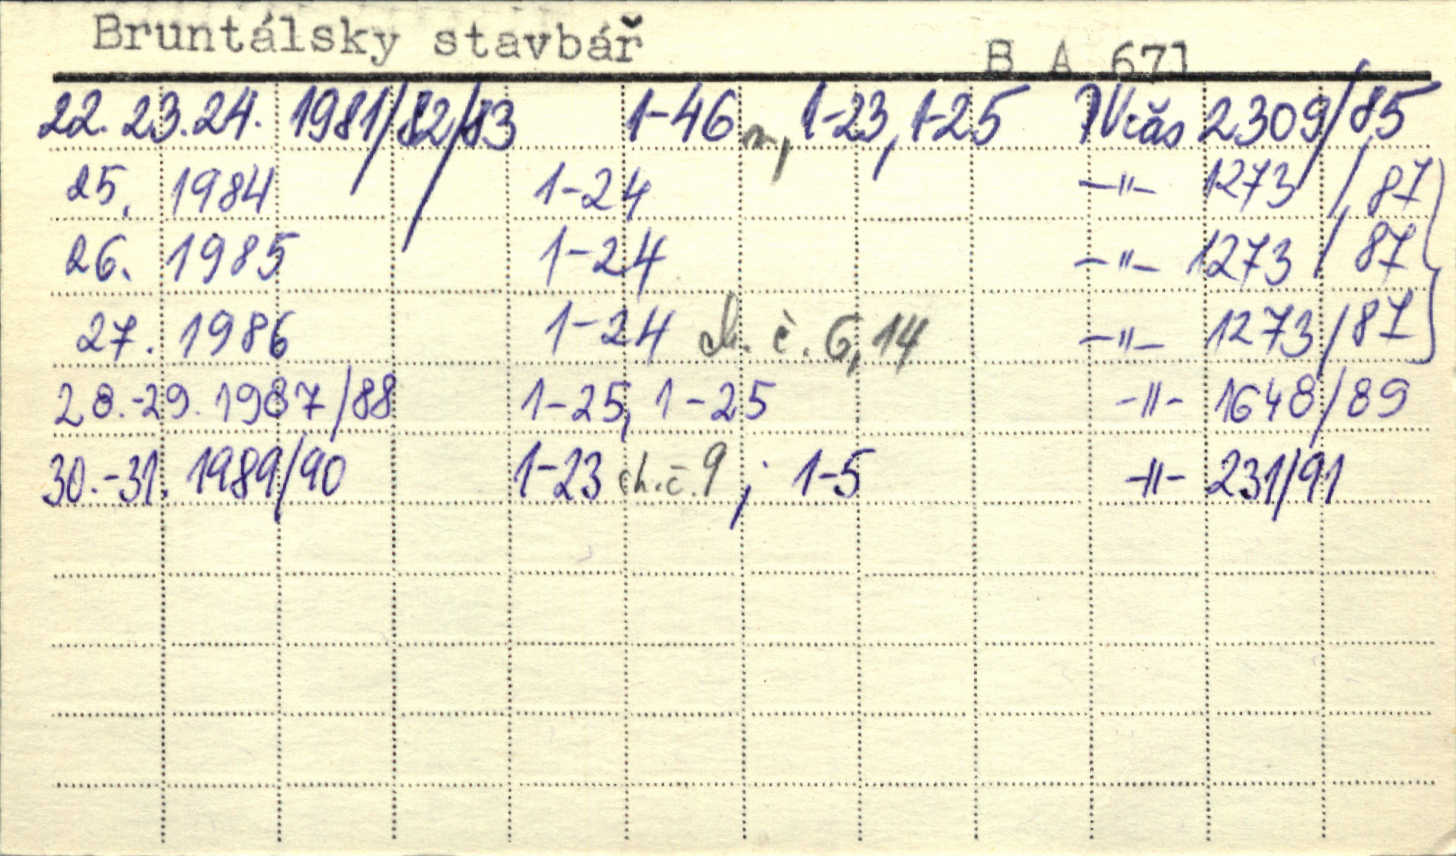 Bruntálsky stavbář B A 671
22. 23. 24. 1981/82/83 1-46, 1-23, 1-25 Včás 2309/85
25. 1984 1-24 -"- 1273/87
26. 1985 1-24 -"- 1273/87
27. 1986 1-24 ch. č. 6, 14 -"- 1273/87
28.-29. 1987/88 1-25, 1-25 -"- 1648/89
30.-31. 1989/90 1-23 ch. č. 9; 1-5 -"- 231/91